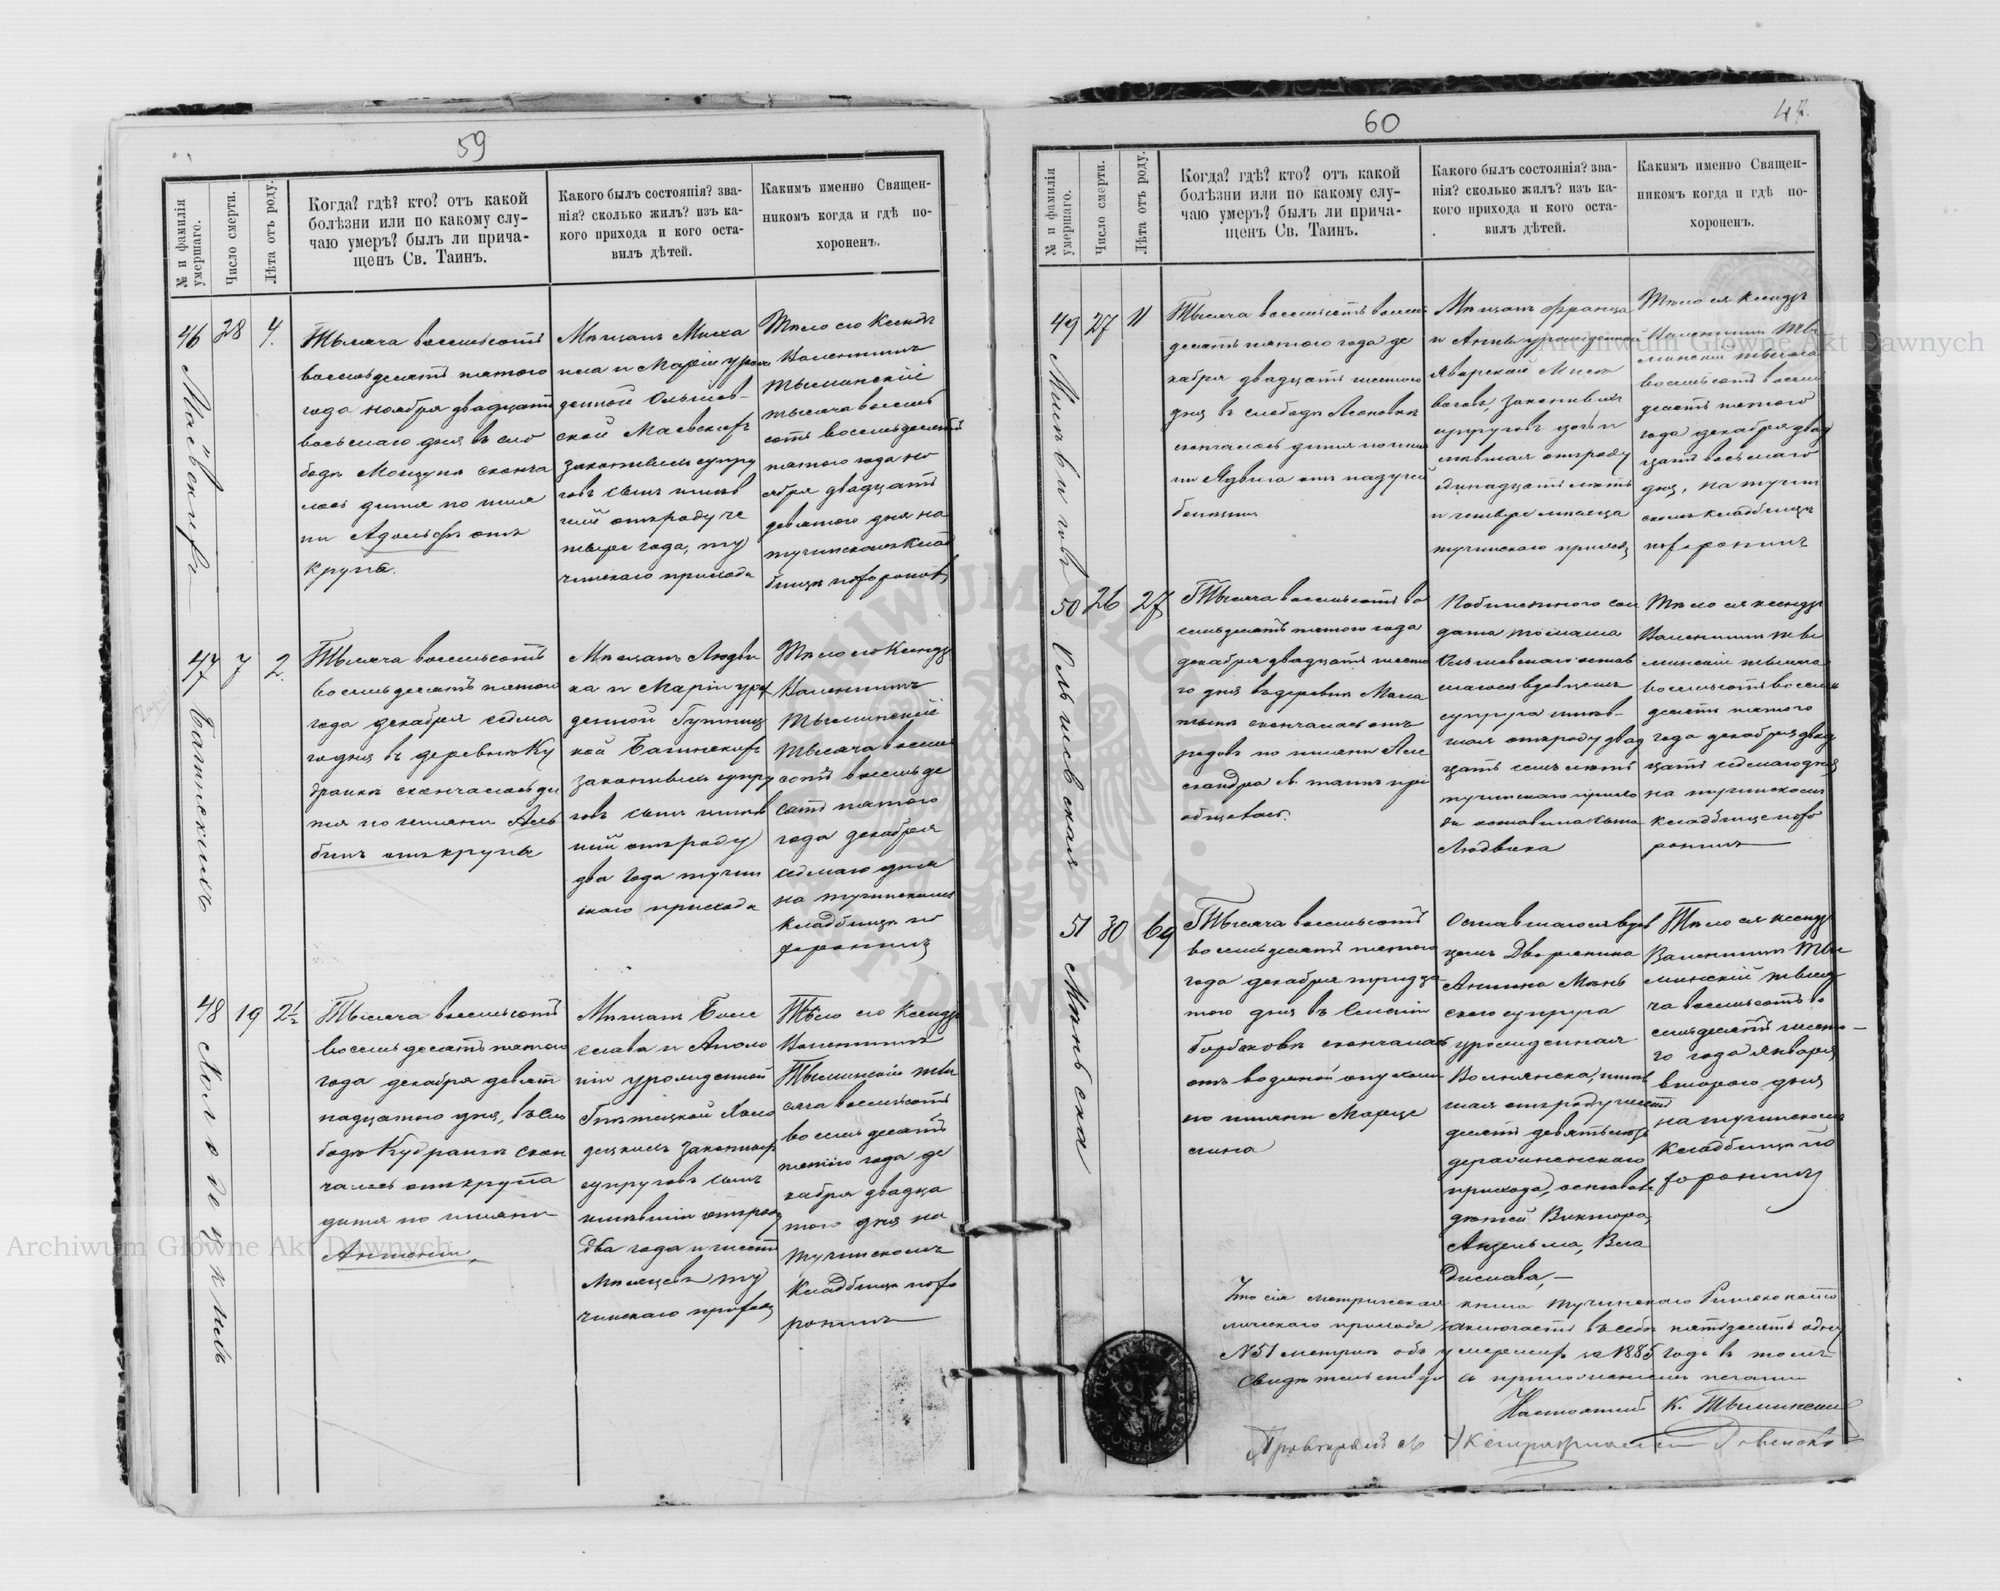 59
№ и фамилія умершаго.
Число смерти.
Лѣта отъ роду.
Когда? гдѣ? кто? отъ какой
болѣзни или по какому слу-
чаю умеръ? былъ ли прича-
щенъ Св. Таинъ.
Какого былъ состоянія? зва-
нія? сколько жилъ? изъ ка-
кого прихода и кого оста-
вилъ дѣтей.
Какимъ именно Священ-
никомъ когда и гдѣ по-
хороненъ.
46
28
4.
Тысяча восемьсотъ
восемьдесятъ пятого
года ноября двадцать
восьмаго дня въ сло
бодѣ скончa
лось дитя по имя
ни Адольфъ отъ
крупа.
Мѣщанъ Миха
ила и Маріи урож
денной Ольшев-
ской Маевскихъ
законныхъ супру
говъ сынъ имѣв
шій отъ роду че
тыре года, ту
чинскаго прихода
Тѣло его Ксендзъ
Валентинъ
Тыминскій
тысяча восемь
сотъ восемьдесятъ
пятого года но
ября двадцать
девятого дня на
тучинскомъ клад
бищѣ похоронилъ
47
7
2.
Тысяча восемьсотъ
восемьдесятъ пятого
года декабря седьма
го дня въ деревнѣ Ку
дранкѣ скончалось ди
тя по имяни Аль
бинъ отъ крупа
Мѣщанъ Людви
ка и Маріи урож
денной
кой Багинскихъ
законныхъ супру
говъ сынъ имѣв
шій отъ роду
два года тучин
скаго прихода
Тѣло его Ксендзъ
Валентинъ
Тыминскій
тысяча восемь
сотъ восемьде
сятъ пятого
года декабря
седмаго дня
на тучинскомъ
кладбищѣ по
хоронилъ
48
19
2½
Холодецкій
Тысяча восемьсотъ
восемьдесятъ пятого
года декабря девят
надцатого дня, въ сло
бодѣ Кудранкѣ скон
чалось отъ крупа
дитя по имяни
Антоній,
Мѣщанъ Боле
слава и Аполо
ніи урожденной
Холо
децкихъ законныхъ
супруговъ сынъ
имѣвшій отъ роду
два года и шесть
мѣсяцевъ ту
чинскаго прихода
Тѣло его Ксендзъ
Валентинъ
Тыминскій ты
сяча восемьсотъ
восемьдесятъ
пятого года де
кабря двадца
того дня на
тучинскомъ
кладбищѣ похо
ронилъ
60
47.
№ и фамилія умершаго.
Число смерти.
Лѣта отъ роду.
Когда? гдѣ? кто? отъ какой
болѣзни или по какому слу-
чаю умеръ? былъ ли прича-
щенъ Св. Таинъ.
Какого былъ состоянія? зва-
нія? сколько жилъ? изъ ка-
кого прихода и кого оста-
вилъ дѣтей.
Какимъ именно Священ-
никомъ когда и гдѣ по-
хороненъ.
49
27
11
Тысяча восемьсотъ восемь
десятъ пятого года де
кабря двадцать шестого
дня въ слободѣ
скончалось дитя по имя
ни Ядвига отъ падучей
болѣзни
Мѣщанъ Франца
и Анны урожденной
Яворской
законныхъ
супруговъ дочь и
мѣвшая отъ роду
одинадцать лѣтъ
и четыре мѣсяца
тучинскаго прихода
Тѣло ея Ксендзъ
Валентинъ Ты
минскій тысяча
восемьсотъ восемь
десятъ пятого
года декабря двад
цать восьмаго
дня, на тучин
скомъ кладбищѣ
похоронилъ
50
26
27
Ольшевская
Тысяча восемьсотъ во
семьдесятъ пятого года
декабря двадцать шесто
го дня въ деревнѣ
скончалась отъ
родовъ по имяни Але
ксандра св. таинъ прі
общалась.
сол
дата Томаша
Ольшевскаго остав
шагося вдовцемъ
супруга имѣв-
шая отъ роду двад
цать семь лѣтъ
тучинскаго прихо
да оставила сына
Людвика
Тѣло ея ксендзъ
Валентинъ Ты
минскій тысяча
восемьсотъ восемь
десятъ пятого
года декабря двад
цать седмаго дня
на тучинскомъ
кладбищѣ похо
ронилъ
51
30
69
Маньска
Тысяча восемьсотъ
восемьдесятъ пятого
года декабря тридца
того дня въ
скончалась
отъ водяной опухоли
по имяни Марце
лина
Оставшагося вдов
цемъ Дворянина
Антона Мань
скаго супруга
урожденная
имѣв
шая отъ роду шесть
десятъ девять лѣтъ
прихода, оставила
дѣтей Виктора,
Анзельма, Вла
дислава,—
Тѣло ея ксендзъ
Валентинъ Ты
минскій тысяч
ча восемьсотъ во
семьдесятъ шесто-
го года января
второго дня
на тучинскомъ
кладбищѣ по
хоронилъ
Что сія метрическая книга тучинскаго Римско като
лическаго прихода заключаетъ въ себѣ пятьдесятъ одну
№ 51 метрикъ объ умершихъ за 1885 годъ въ томъ
свидѣтельствую съ приложеніемъ печати
Настоятель К. Тыминскій
Archiwum Główne Akt Dawnych
Archiwum Główne Akt Dawnych
ARCHIWUM GŁÓWNE AKT DAWNYCH